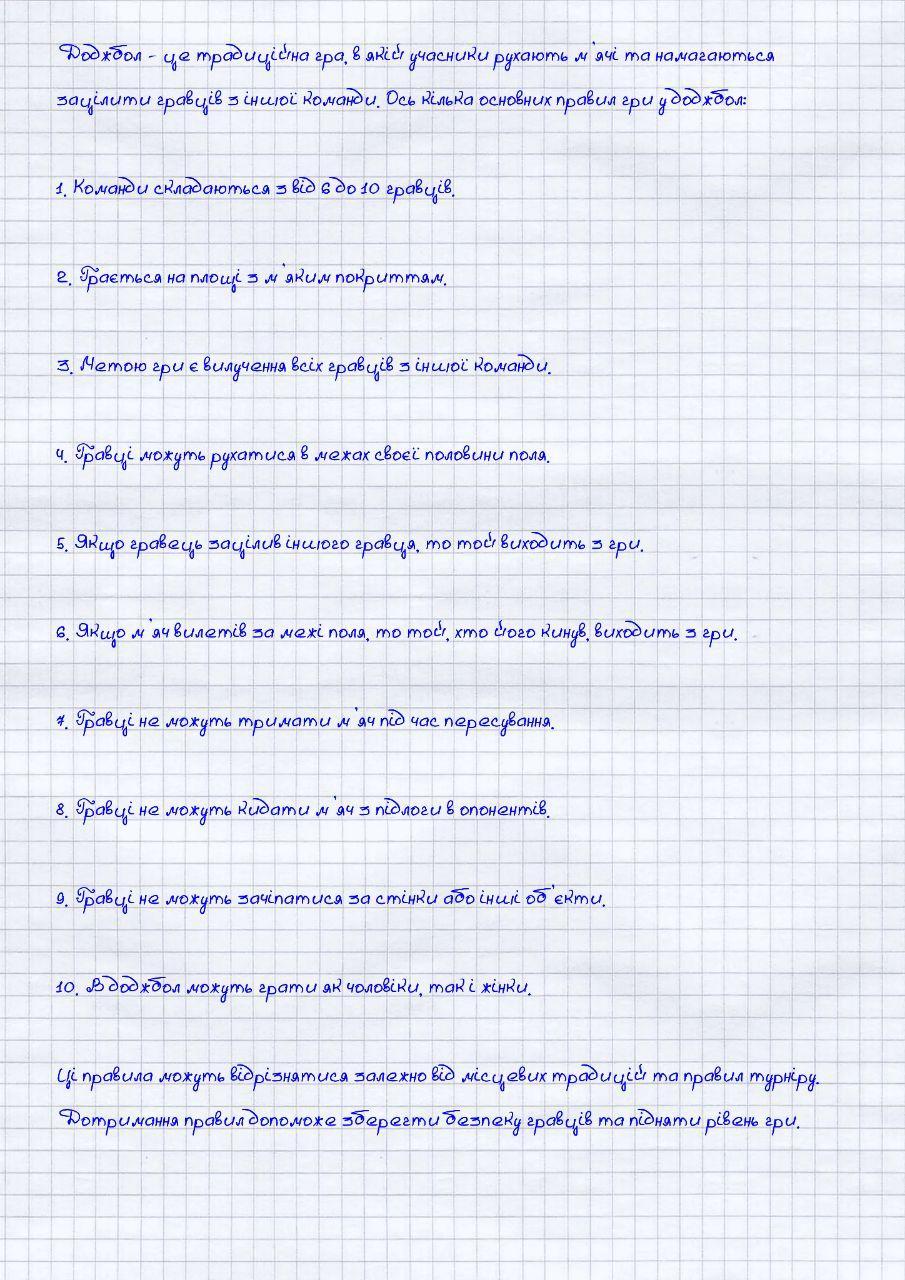 Доджбол - це традиційна гра, в якій учасники рухають м'ячі та намагаються
зацілити гравців з іншої команди. Ось кілька основних правил гри у доджбол:
1. Команди складаються з від 6 до 10 гравців.
2. Грається на площі з м'яким покриттям.
3. Метою гри є вилучення всіх гравців з іншої команди.
4. Гравці можуть рухатися в межах своєї половини поля.
5. Якщо гравець зацілив іншого гравця, то той виходить з гри.
6. Якщо м'яч вилетів за межі поля, то той, хто його кинув, виходить з гри.
7. Гравці не можуть тримати м'яч під час пересування.
8. Гравці не можуть кидати м'яч з підлоги в опонентів.
9. Гравці не можуть зачіпатися за стінки або інші об'єкти.
10. В доджбол можуть грати як чоловіки, так і жінки.
Ці правила можуть відрізнятися залежно від місцевих традицій та правил турніру.
Дотримання правил допоможе зберегти безпеку гравців та підняти рівень гри.